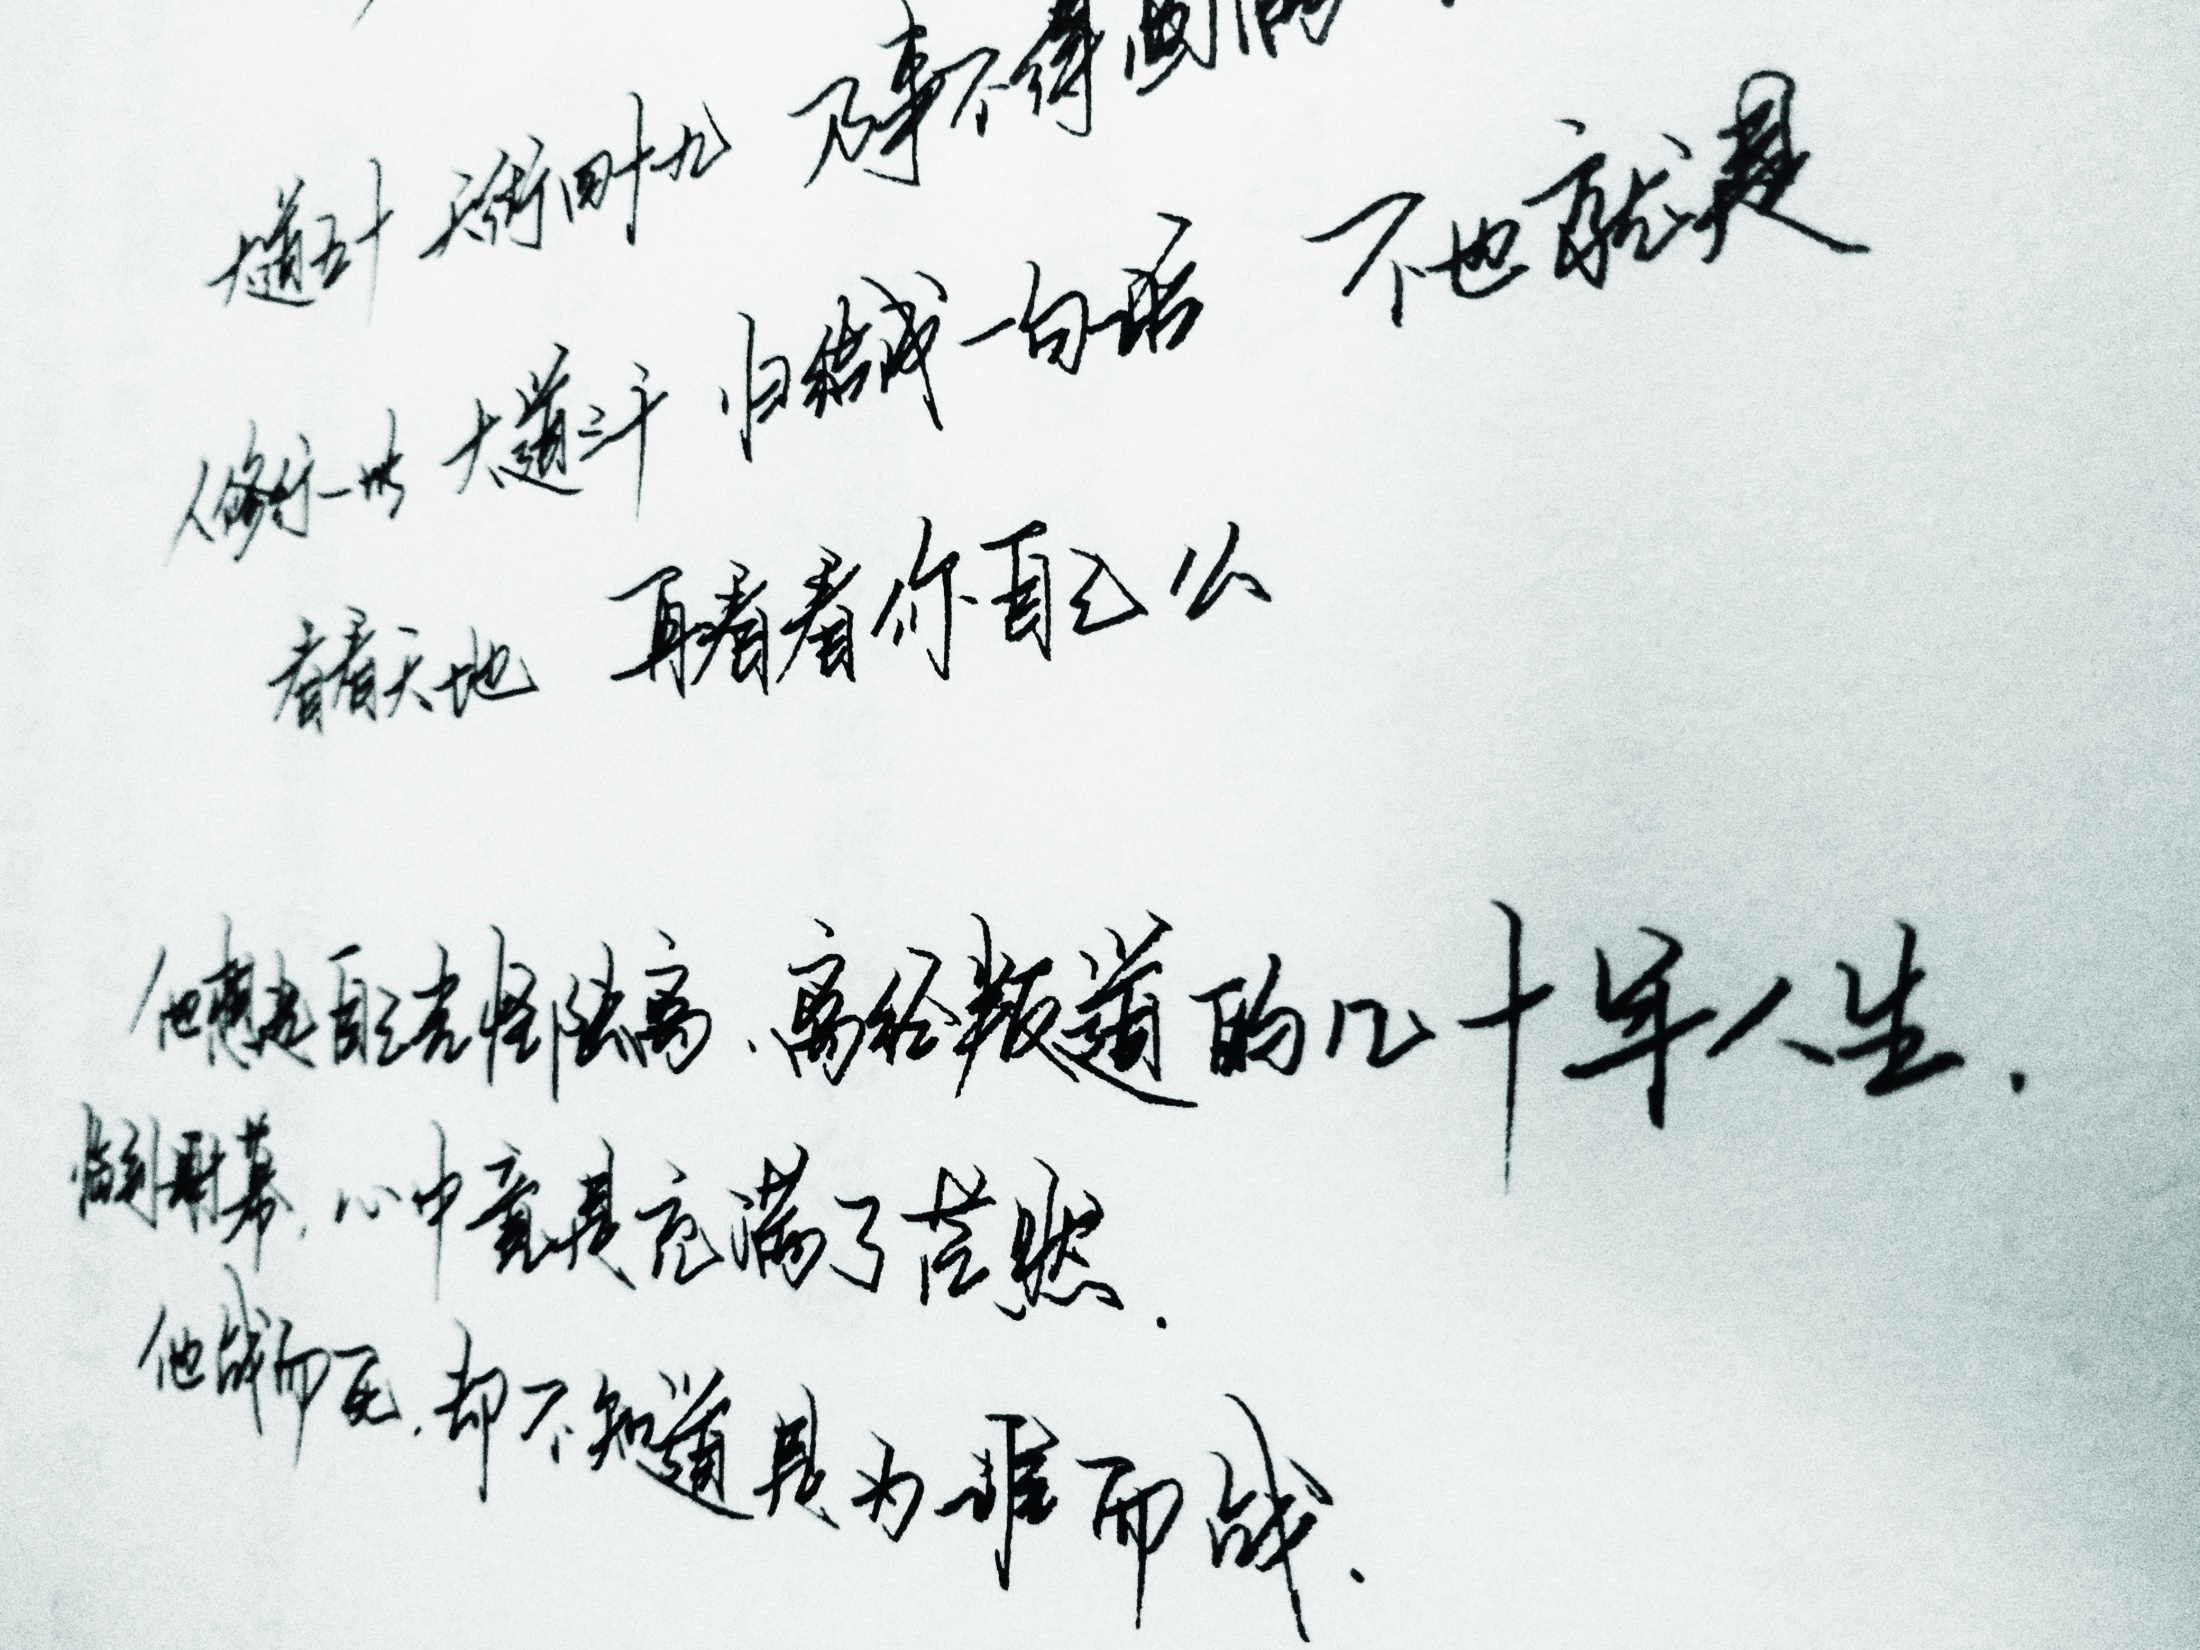 大道五十 天衍四十九 万事不得圆满
人修行一世 大道三千 归结成一句话 不也就是
看看天地 再看看你自己么
他想起自己光怪陆离、离经叛道的几十年人生.
临到谢幕,心中竟是充满了茫然.
他战而死,却不知道是为谁而战.